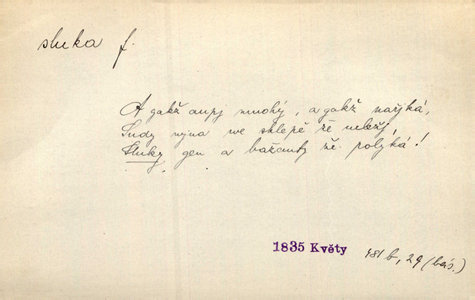 sluka f.
A gakž aupj mnohý, a gakž nařjká,
Sudy wjna we sklepě že neležj,
Sluky gen a bažanty že polyká!
1835 Květy 481 b, 29 (bás.)